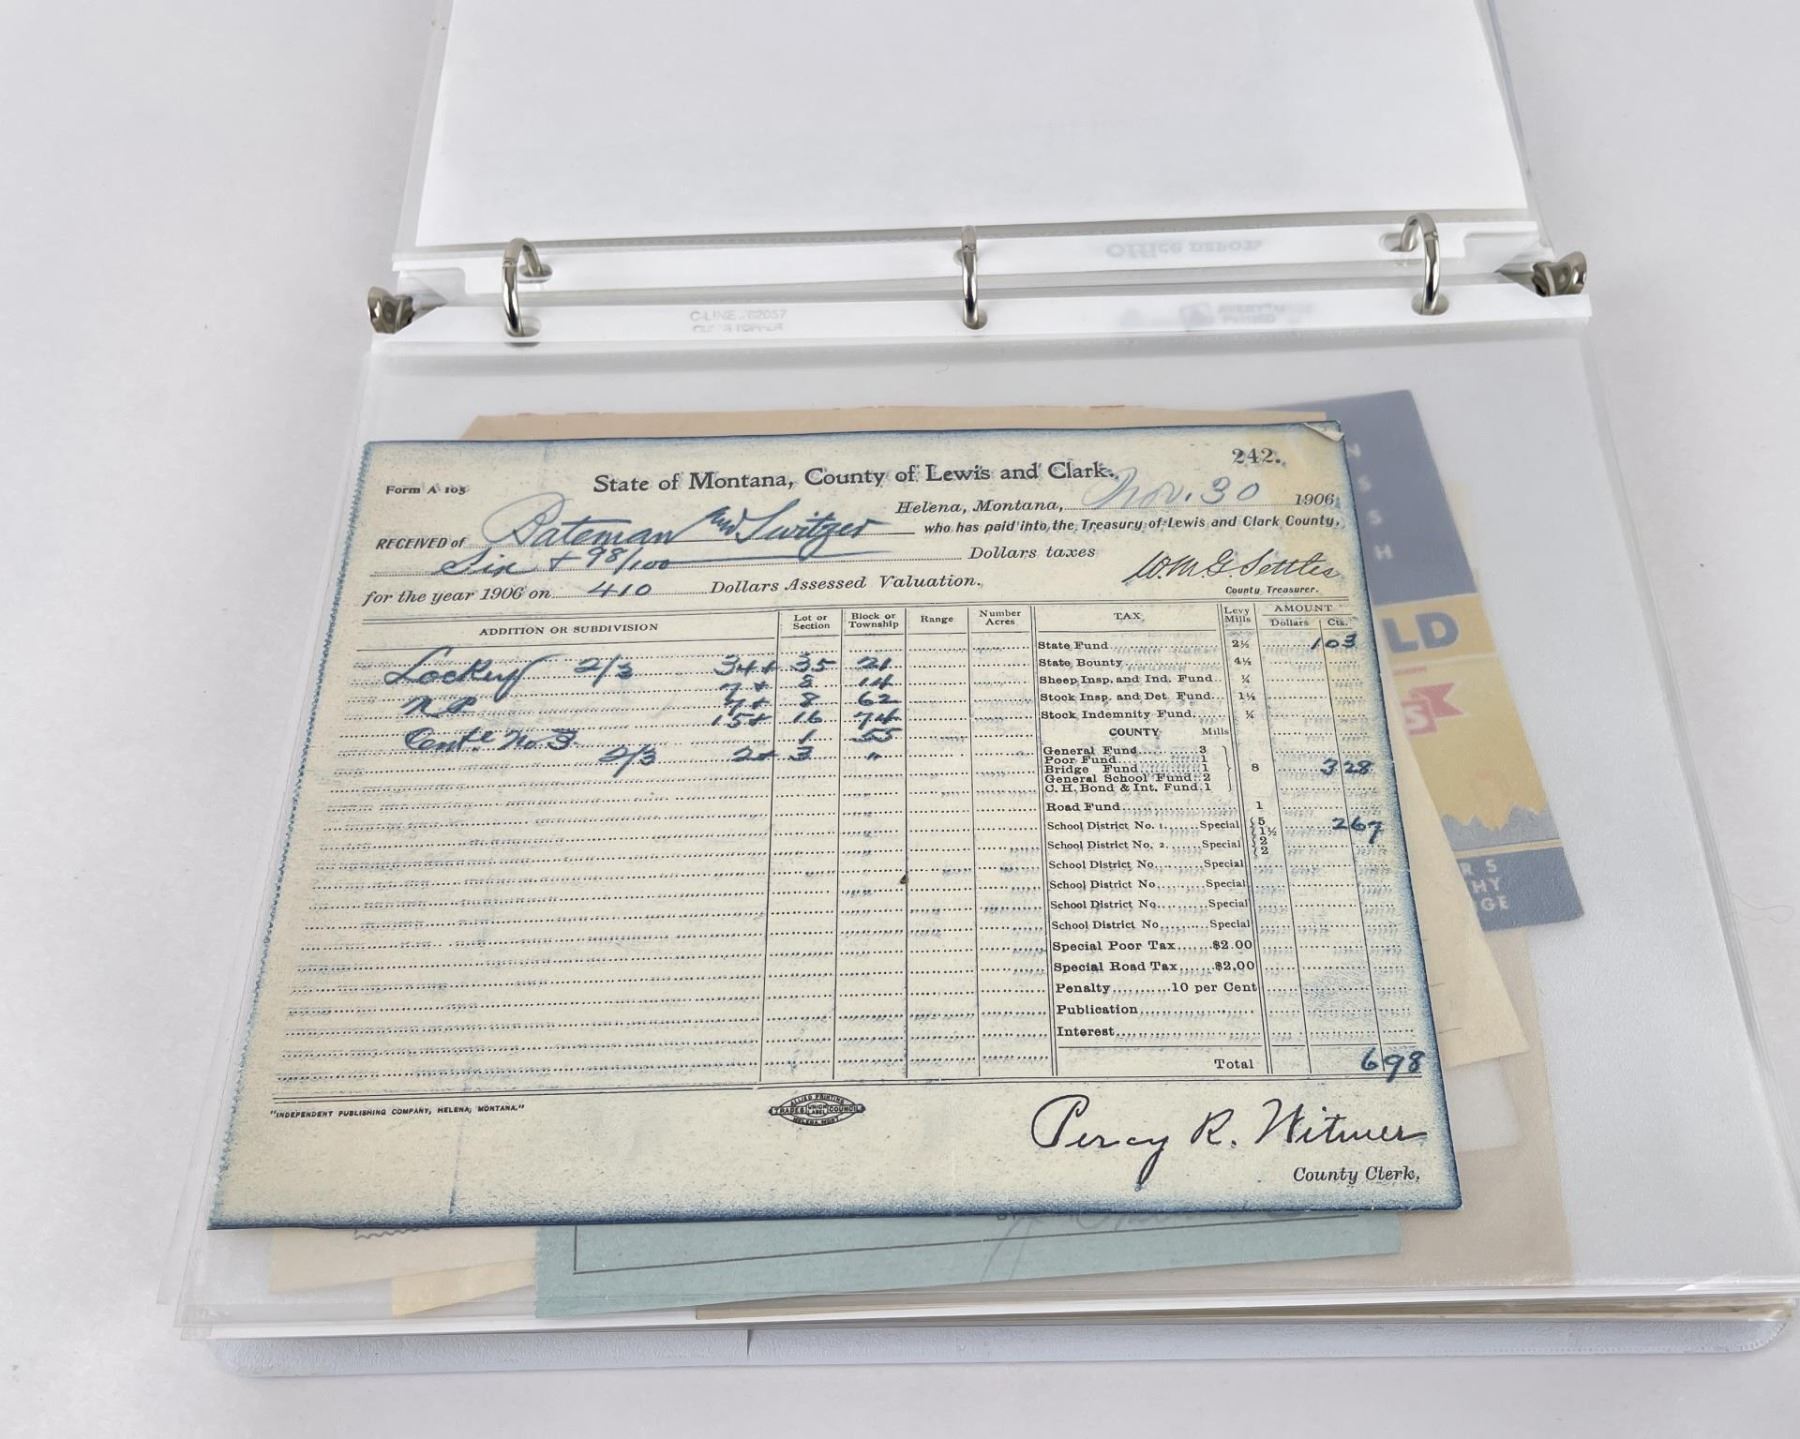 Office DEPOT.
C-LINE - 62057
242.
Form A 105
State of Montana, County of Lewis and Clark.
Helena, Montana, Nov. 30 1906
RECEIVED of Bateman and Switzer who has paid into the Treasury of Lewis and Clark County,
Six + 98/100 Dollars taxes
for the year 1906 on 410 Dollars Assessed Valuation.
W.M.G. Settles
County Treasurer.
ADDITION OR SUBDIVISION Lot or Section Block or Township Range Number Acres TAX Levy Mills AMOUNT Dollars Cts.
Lockey 2/3 34+ 35 21
7+ 8 14
N.P. 7+ 8 62
15+ 16 74
Cent. No 3 1 55
2/3 2+ 3 "
State Fund 2½ 1 03
State Bounty 4½
Sheep Insp. and Ind. Fund ¼
Stock Insp. and Det. Fund 1¼
Stock Indemnity Fund ¼
COUNTY Mills
General Fund 3
Poor Fund 1
Bridge Fund 1 8 3 28
General School Fund 2
C. H. Bond & Int. Fund 1
Road Fund 1
School District No. 1. Special 5 1½ 2 67
School District No. 2 Special 2 2
School District No. Special
School District No. Special
School District No. Special
School District No. Special
Special Poor Tax $2.00
Special Road Tax $2.00
Penalty 10 per Cent
Publication
Interest
Total 6 98
"INDEPENDENT PUBLISHING COMPANY, HELENA, MONTANA."
ALLIED PRINTING
TRADES UNION LABEL COUNCIL
HELENA, MONT
Percy R. Witmer
County Clerk.
N
S
S
H
LD
S
RS
HY
GE